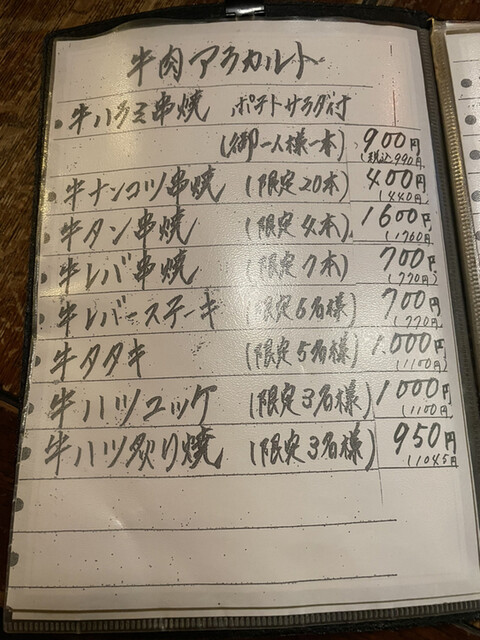 牛肉アラカルト
牛ハラミ串焼 ポテトサラダ付
(御一人様一本) 900円
(税込990円
牛ナンコツ串焼 (限定20本) 400円
(440円
牛タン串焼 (限定4本) 1600円
(1760円
牛レバ串焼 (限定7本) 700円
(770円)
牛レバーステーキ (限定6名様) 700円
(770円
牛タタキ (限定5名様) 1.000円
(1100円)
牛ハツユッケ (限定3名様) 1000円
(1100円
牛ハツ炙り焼 (限定3名様) 950円
(1045円